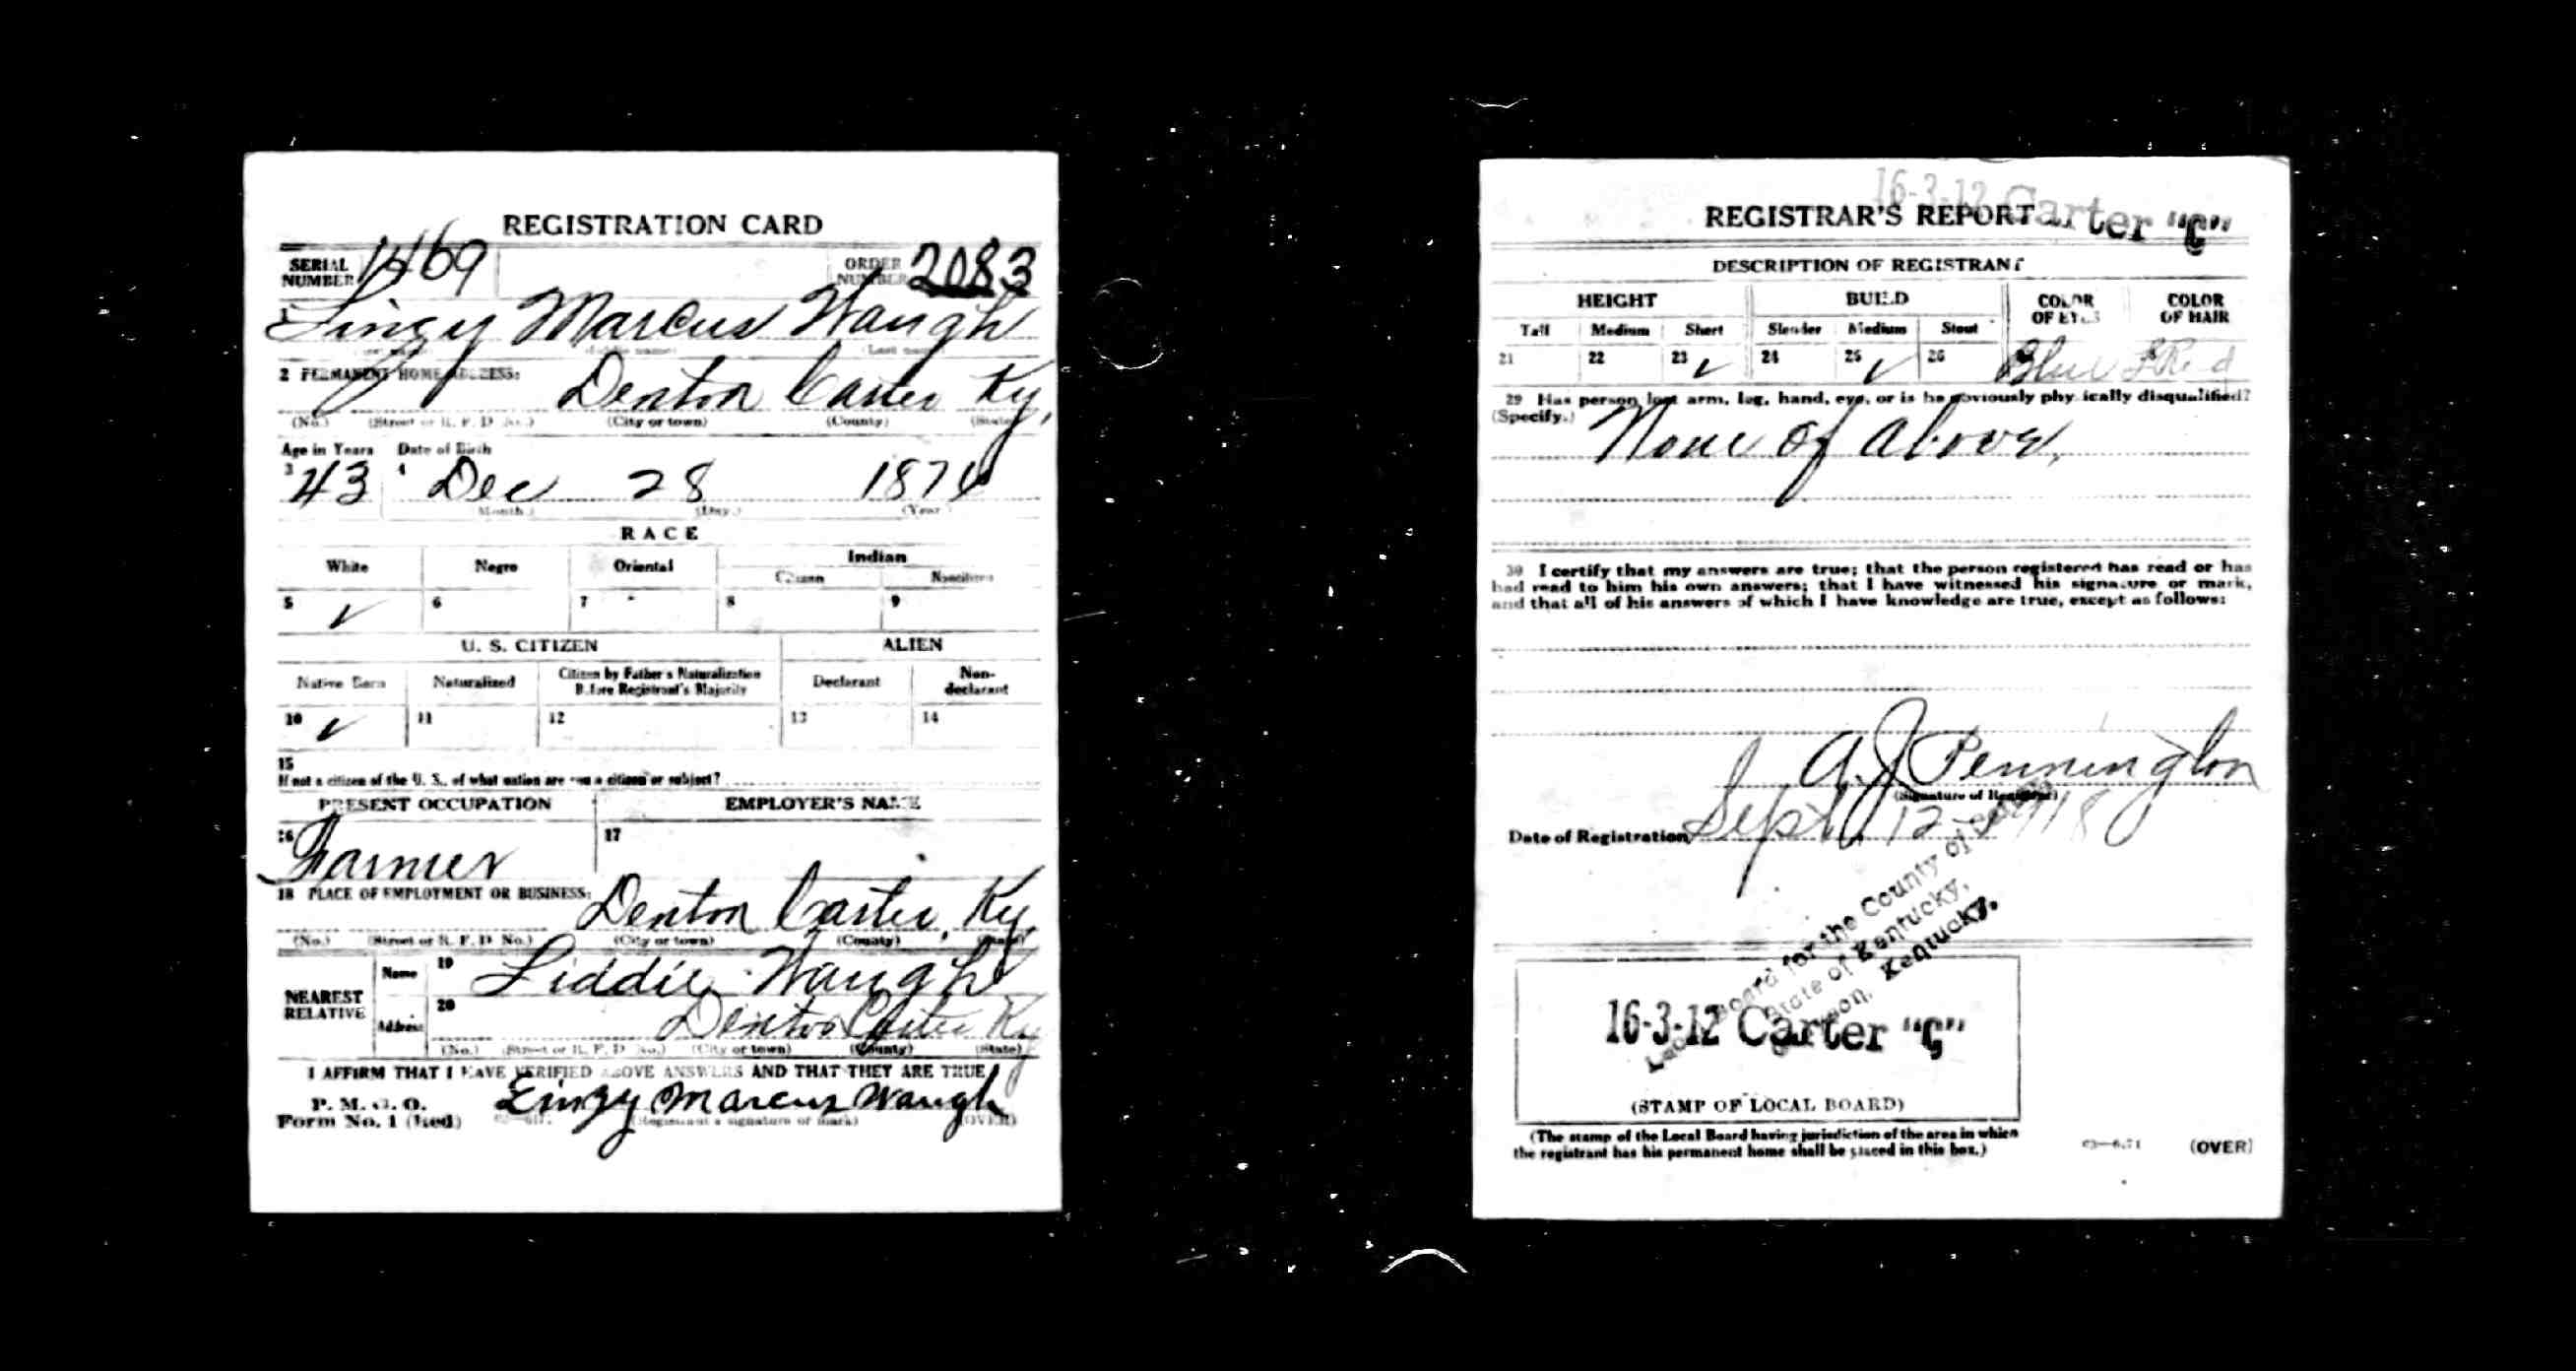 REGISTRATION CARD
SERIAL NUMBER 1469 ORDER NUMBER 2083
1 Lingy Marcus Waugh
(Last name)
2 PERMANENT HOME ADDRESS: Denton Carter Ky.
(No.) (Street or R. F. D. No.) (City or town) (County) (State)
Age in Years Date of Birth
3 43 4 Dec 28 1874
(Month.) (Day.) (Year.)
RACE
White Negro Oriental Indian
Citizen Noncitizen
5 ✓ 6 7 8 9
U. S. CITIZEN ALIEN
Native Born Naturalized Citizen by Father's Naturalization Before Registrant's Majority Declarant Non-declarant
10 ✓ 11 12 13 14
15
If not a citizen of the U. S., of what nation are you a citizen or subject?
PRESENT OCCUPATION EMPLOYER'S NAME
16 Farmer 17
18 PLACE OF EMPLOYMENT OR BUSINESS: Denton Carter, Ky.
(No.) (Street or R. F. D. No.) (City or town) (County) (State)
NEAREST RELATIVE Name 19 Liddie Waugh
Address 20 Denton Carter Ky
(No.) (Street or R. F. D. No.) (City or town) (County) (State)
I AFFIRM THAT I HAVE VERIFIED ABOVE ANSWERS AND THAT THEY ARE TRUE
P. M. G. O.
Form No. 1 (Red) Lingy Marcus Waugh
(Registrant's signature or mark) (OVER)
16-3-12 Carter "C"
REGISTRAR'S REPORT
DESCRIPTION OF REGISTRANT
HEIGHT BUILD COLOR OF EYES COLOR OF HAIR
Tall Medium Short Slender Medium Stout
21 22 23 ✓ 24 25 ✓ 26 Blue Red
29 Has person lost arm, leg, hand, eye, or is he obviously physically disqualified?
(Specify.) None of above.
30 I certify that my answers are true; that the person registered has read or has
had read to him his own answers; that I have witnessed his signature or mark,
and that all of his answers of which I have knowledge are true, except as follows:
A. J. Pennington
(Signature of Registrar)
Date of Registration Sept. 12 - 1918
Local Board for the County of
State of Kentucky,
Kentucky.
16-3-12 Carter "C"
(STAMP OF LOCAL BOARD)
(The stamp of the Local Board having jurisdiction of the area in which
the registrant has his permanent home shall be placed in this box.)
(OVER)